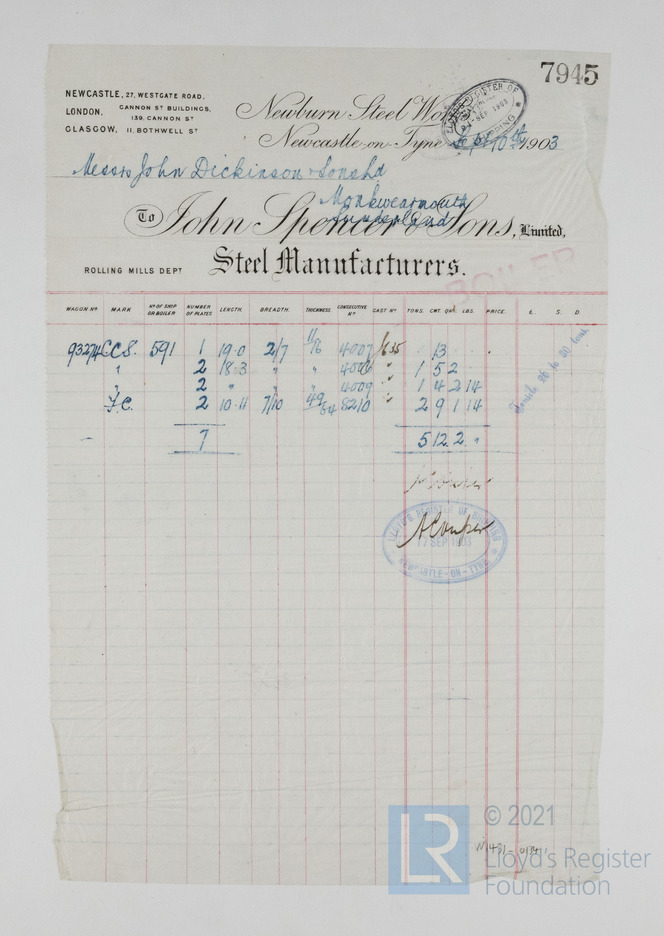 7945
NEWCASTLE, 27, WESTGATE ROAD.
LONDON, CANNON ST BUILDINGS,
139. CANNON ST
GLASGOW, 11, BOTHWELL ST
Newburn Steel Wo
Newcastle-on-Tyne Sept 10th 1903
Messrs John Dickinson & Sons Ld
Monkwearmouth
Sunderland
To John Spencer & Sons, Limited,
ROLLING MILLS DEPT Steel Manufacturers.
BOILER
WAGON No MARK No OF SHIP OR BOILER NUMBER OF PLATES LENGTH. BREADTH. THICKNESS CONSECUTIVE No CAST No TONS. CWT. QRS. LBS. PRICE. £. S. D.
93274 C.C.S. 591 1 19.0 2/7 11/16 4007 13
" 2 18.3 " " 4008 " 1 5 2
" 2 " " " 4009 " 1 4 2 14
F.C. 2 10.11 7/10 49/64 8210 " 2 9 1 14
7 5 12 2 "
Tensile 26 to 30 tons
LLOYD'S REGISTER OF SHIPPING
A Couper
17 SEP 1903
NEWCASTLE-ON-TYNE
© 2021
LR Lloyd's Register
Foundation